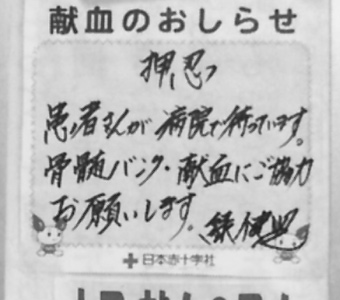 献血のおしらせ
押忍
患者さんが病院で待っています。
骨髄バンク・献血にご協力
お願いします。
日本赤十字社